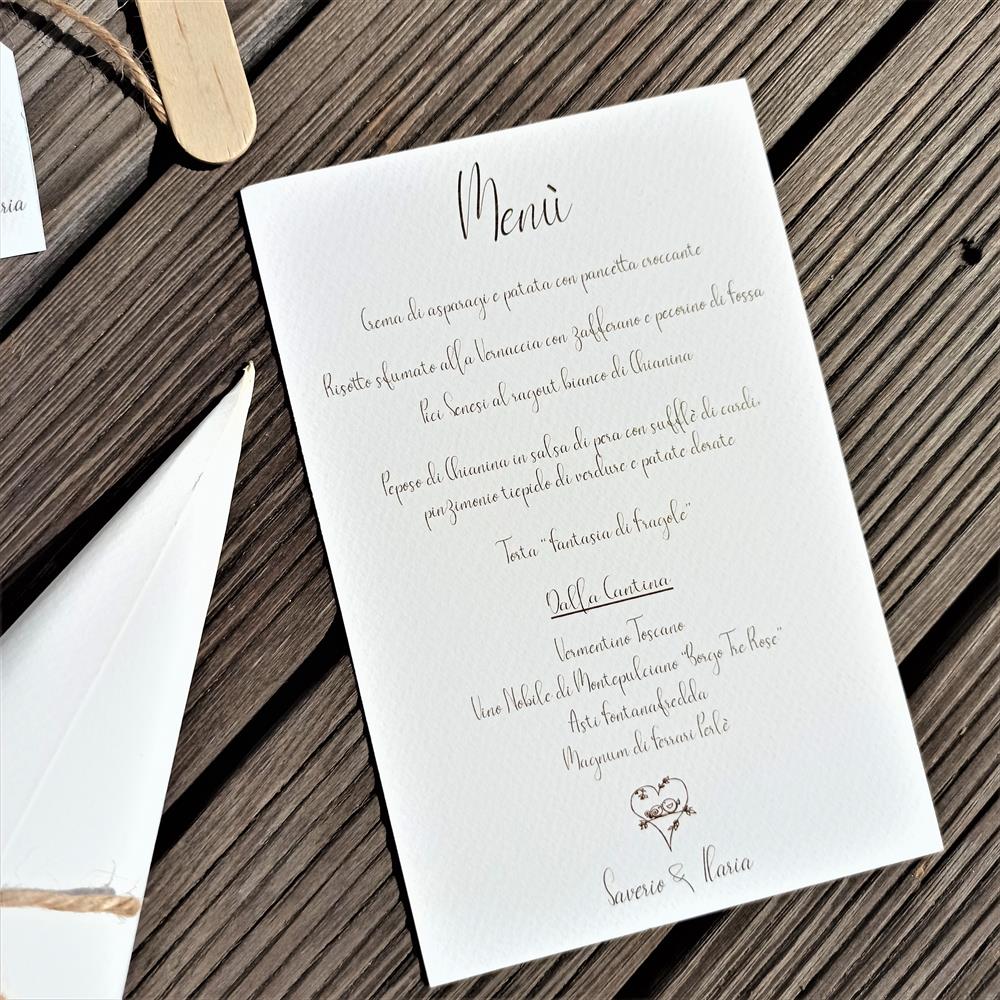 ria
Menù
Crema di asparagi e patata con pancetta croccante
Risotto sfumato alla Vernaccia con zafferano e pecorino di Fossa
Pici Senesi al ragout bianco di Chianina
Peposo di Chianina in salsa di pera con sufflè di cardi,
pinzimonio tiepido di verdure e patate dorate
Torta "Fantasia di Fragole"
Dalla Cantina
Vermentino Toscano
Vino Nobile di Montepulciano "Borgo Tre Rose"
Asti Fontanafredda
Magnum di Ferrari Perlè
Saverio & Ilaria